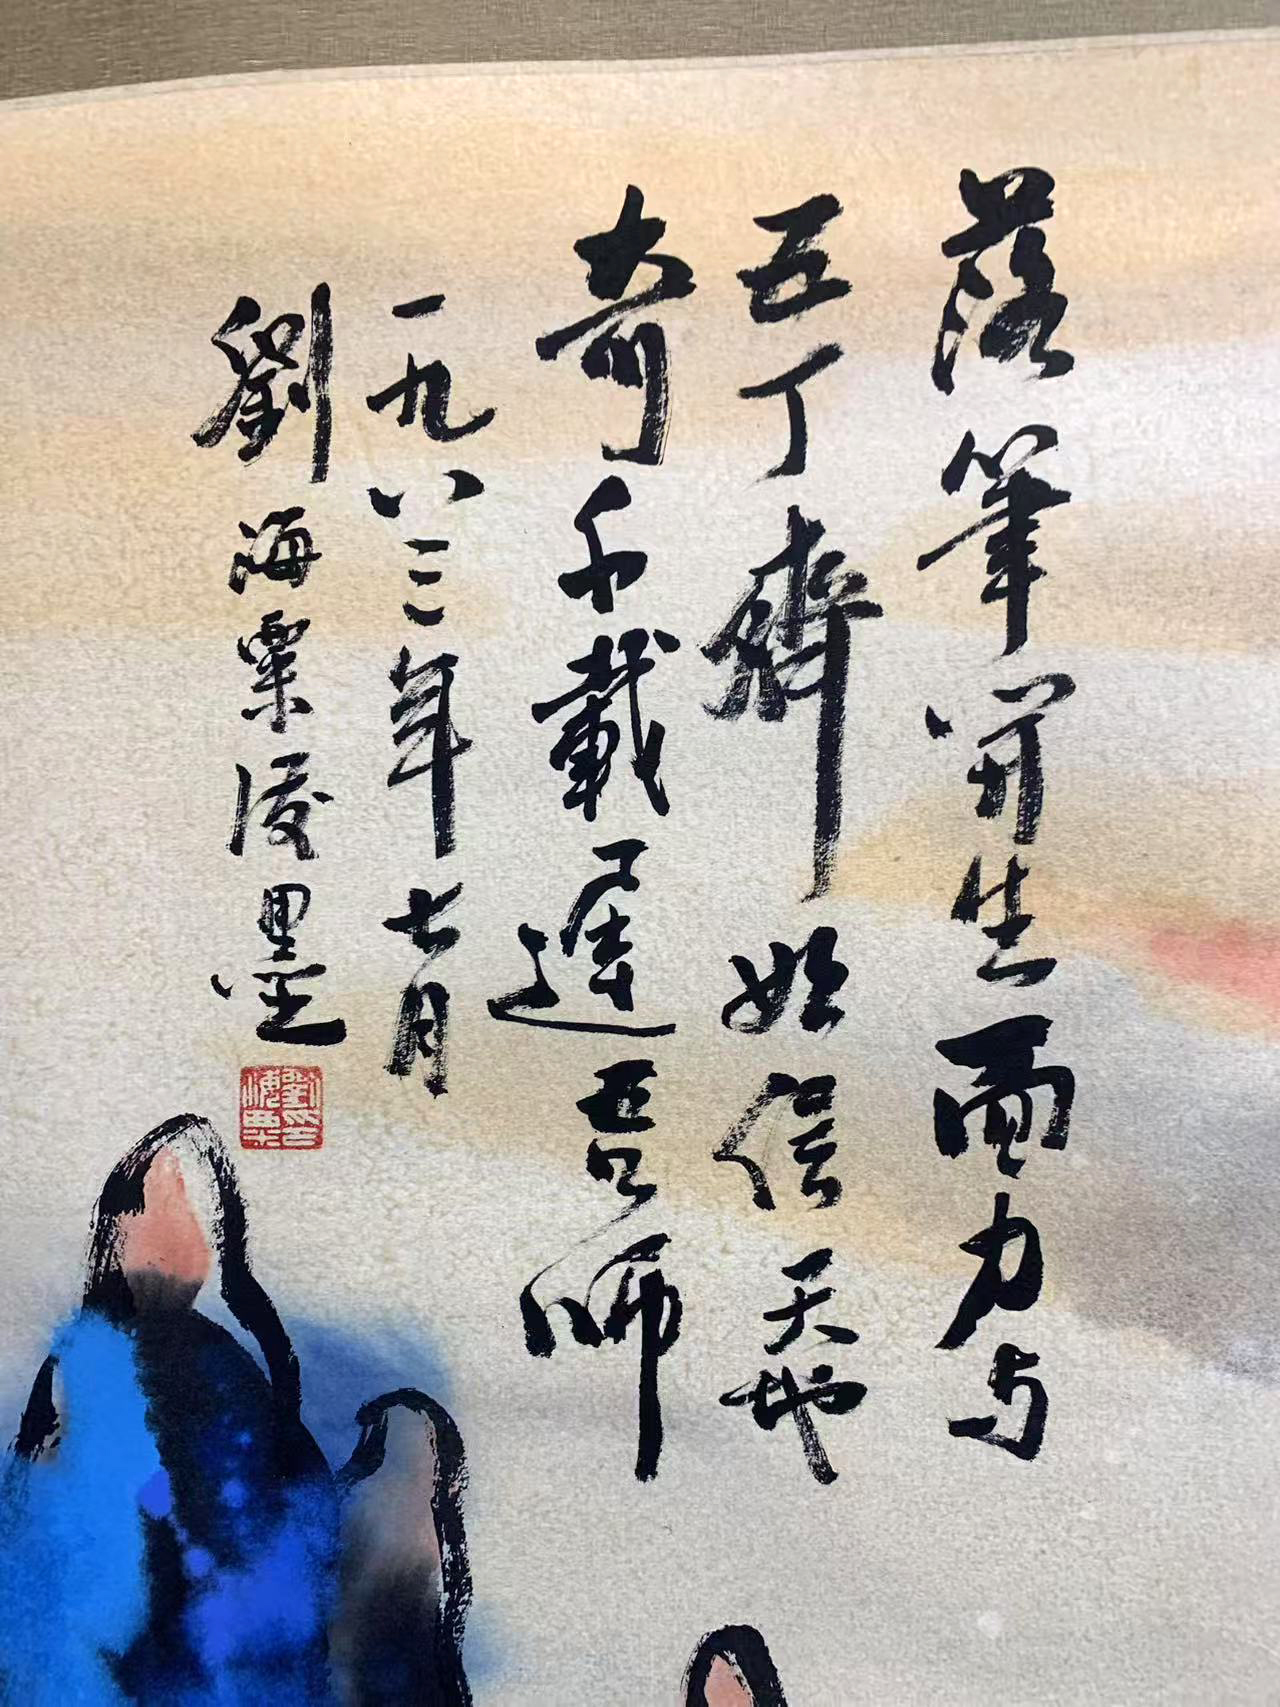 落筆開生面力与
五丁齊始信天地
奇千載遲吾師
一九八二年七月
劉海粟潑墨
劉印海粟